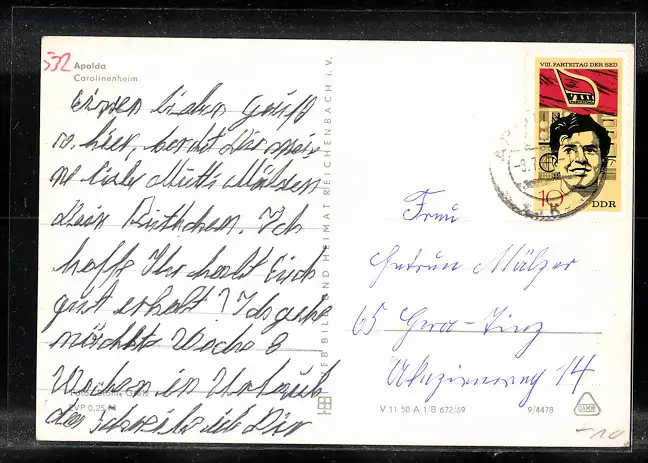 532
Apolda
Carolinenheim
Einen lieben Gruß
v. hier, sendet Dir mei
ne liebe Mutti
Dein Ich
hoffe Ihr habt Euch
gut erholt? Ich gehe
nächste Woche 3
Wochen in Urlaub
dann schreibe ich Dir
Foto: Stolle, Greiz
EVP 0,25 M
VEB BILD UND HEIMAT REICHENBACH i. V.
VIII. PARTEITAG DER SED
VIII
10
DDR
Frau
Gudrun Mälzer
65 Gera-Tinz
Akazienweg 14
V 11 50 A 1/B 672/69
9/4478
-10